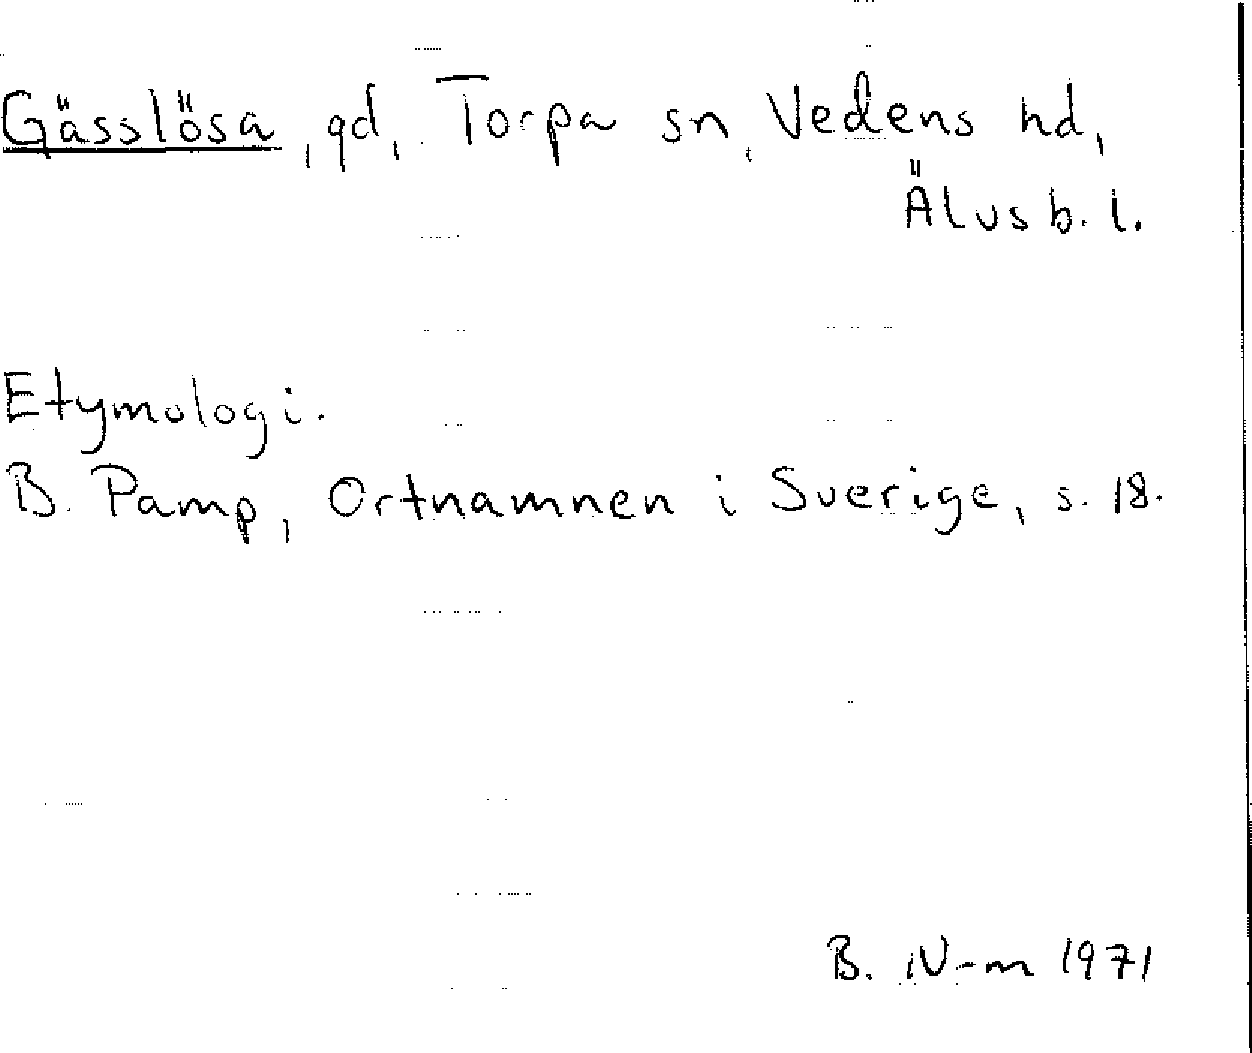 Gässlösa, gd, Torpa sn, Vedens hd,
Älvsb. l.
Etymologi.
B. Pamp, Ortnamnen i Sverige, s. 18.
B. N-m 1971